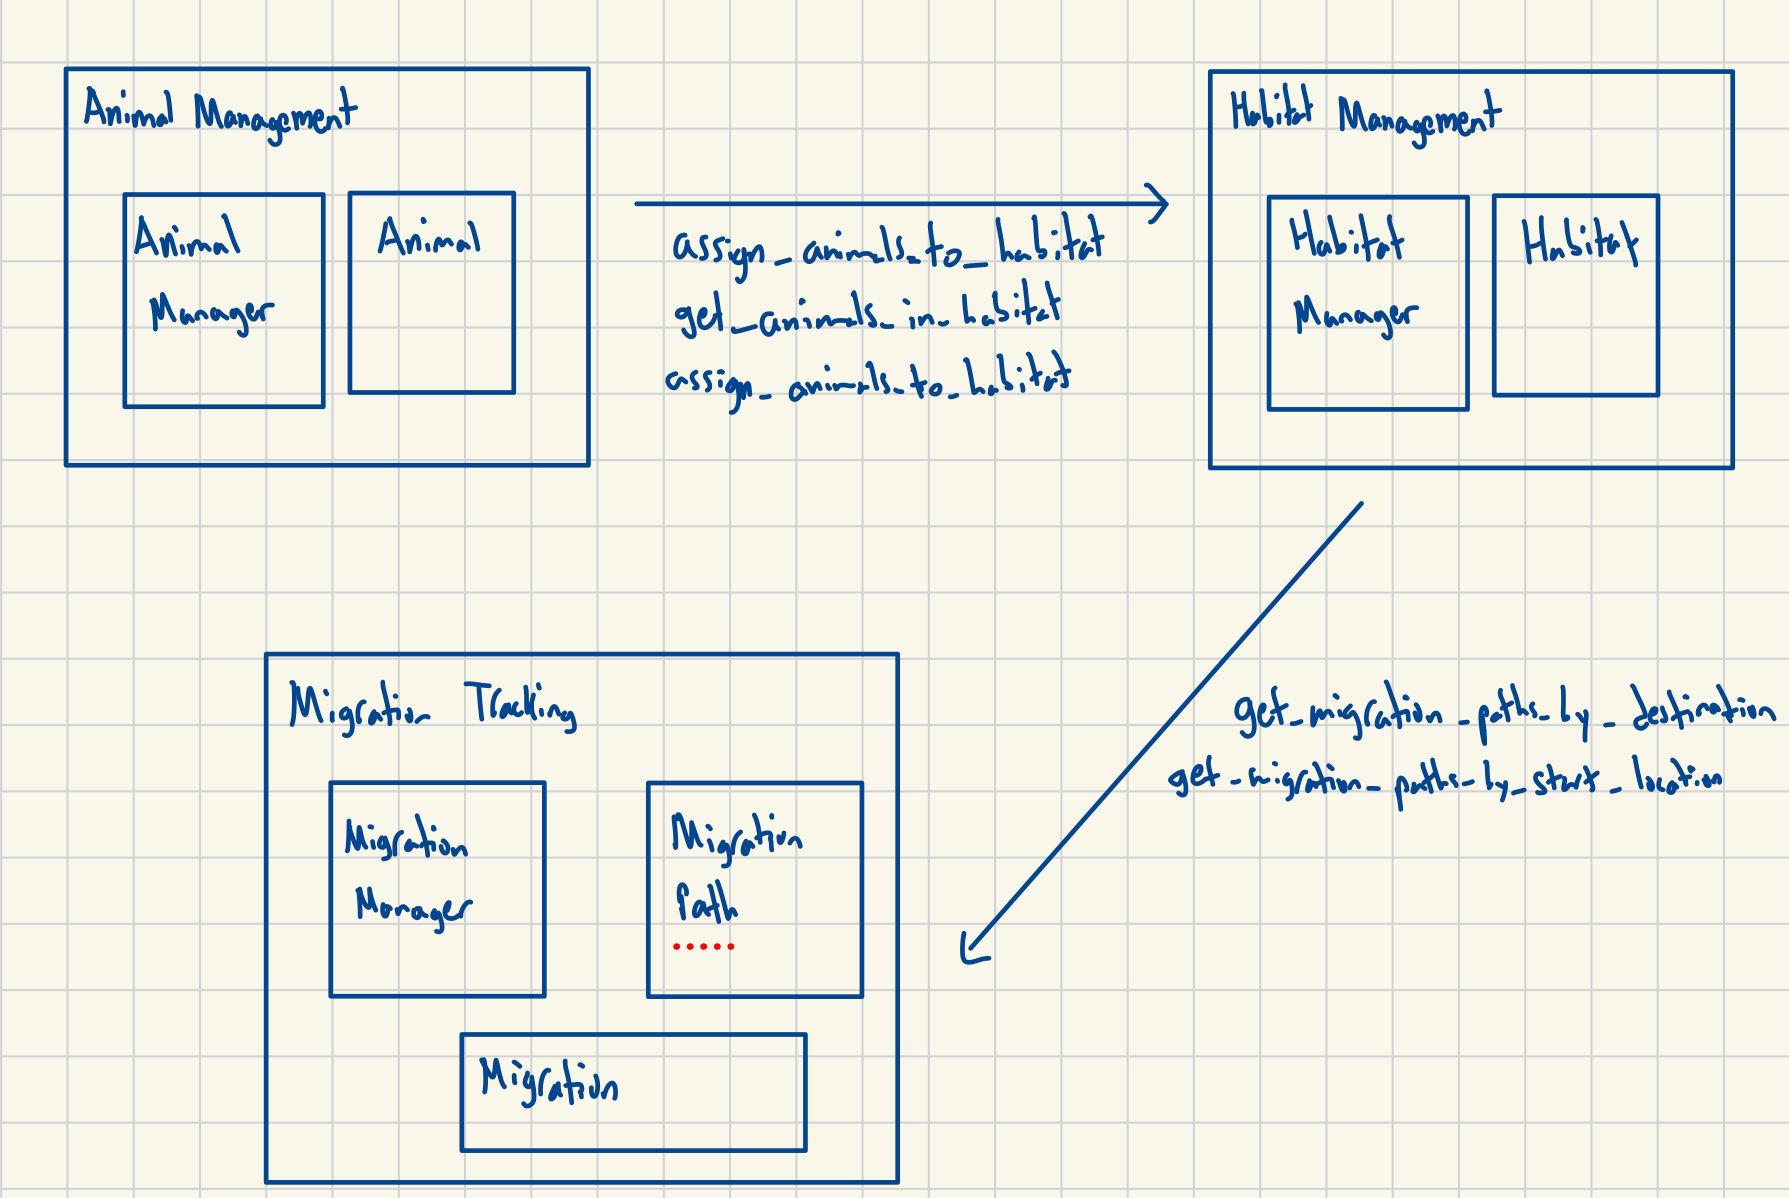 Animal Management
Animal
Manager
Animal
assign_animals_to_habitat
get_animals_in_habitat
assign_animals_to_habitat
Habitat Management
Habitat
Manager
Habitat
get_migration_paths_by_destination
get_migration_paths_by_start_location
Migration Tracking
Migration
Manager
Migration
Path
Migration